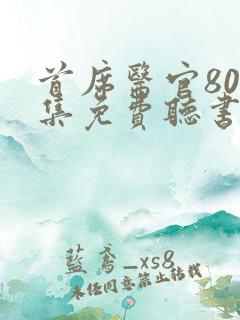 首席醫官80
集免費聽書
藍鸢_xs8
未经同意禁止转载